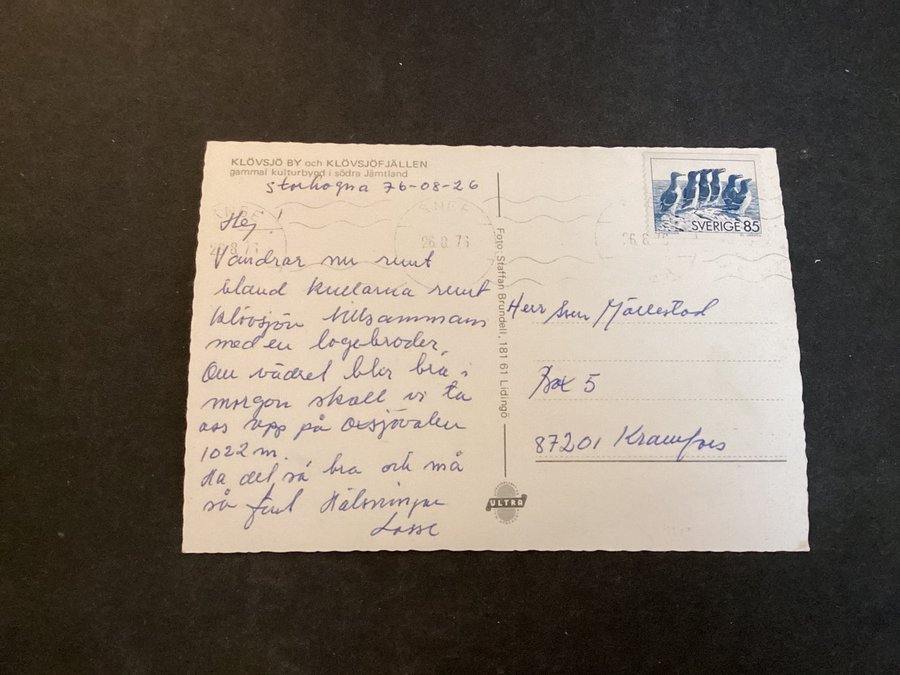 KLÖVSJÖ BY och KLÖVSJÖFJÄLLEN
gammal kulturbygd i södra Jämtland
Storhogna 76-08-26
Hej!
Vandrar nu runt
bland kullarna runt
Klövsjön tillsammans
med en logebroder,
Om vädret blir bra i
morgon skall vi ta
oss upp på Oxsjövalen
1022 m.
Ha det så bra och må
så gott Hälsningar
Lasse
Foto: Staffan Brundell, 181 61 Lidingö
ULTRA
SVERIGE 85
ÅNGE
26.8.76
Herr Sven
Box 5
87201 Kramfors